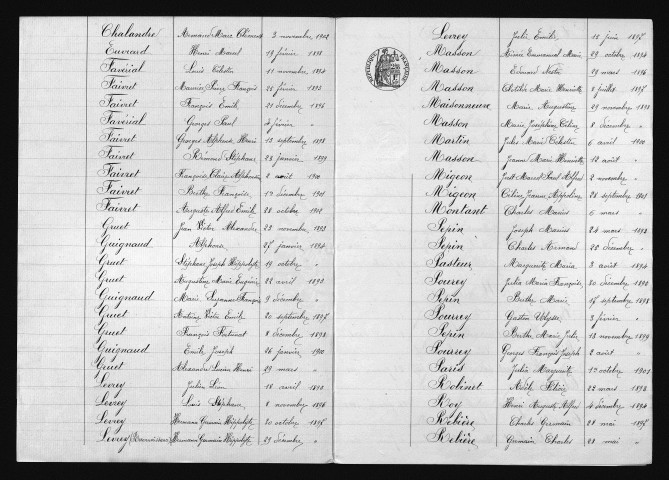 Chalandre Armand Marc Clément 3 novembre 1902
Euvrard Henri Marcel 19 février 1898
Faivret Louis Célestin 11 novembre 1894
Faivret Maurice François 25 février 1895
Faivret François Emile 29 décembre 1896
Faivret Georges Paul 4 février "
Faivret Georges Alphonse Henri 12 septembre 1898
Faivret Stéphane 23 janvier 1899
Faivret Françoise Claire Alphonsine 2 avril 1900
Faivret Berthe Françoise 19 décembre 1901
Faivret Auguste Alfred Emile 28 octobre 1902
Gruet Jean Alexandre 23 novembre 1893
Guignaud Alphonse 27 janvier 1894
Gruet Stéphane Joseph Hippolyte 19 octobre "
Gruet Augustine Marie Eugénie 22 avril 1896
Guignaud Marie Suzanne François 9 décembre "
Gruet Antoine Emile 20 septembre 1897
Gruet François Fortunat 8 décembre 1898
Guignaud Emile Joseph 26 janvier 1900
Gruet Alexandre Lucien Henri 29 mars "
Levrey Julien Léon 18 avril
Levrey Louis Stéphane 8 novembre 1896
Levrey Hermann Germain Hippolyte 20 octobre 1895
Levrey (Reconnaissance) Hermann Germain Hippolyte 29 décembre "
Levrey Julie Emile 15 juin 1897
RÉPUBLIQUE FRANÇAISE
Masson Emmanuel Marie 29 octobre 1894
Masson Edmond Nestor 29 mars 1896
Masson Clotilde Marie Henriette 8 juillet 1897
Maisonneuve Marie Augustine 29 novembre 1898
Masson Marie Joséphine Céline 8 décembre "
Martin Jules Marie Célestin 6 avril 1900
Masson Jeanne Marie Henriette 12 août "
Migeon Just Marcel Paul Alfred 2 novembre "
Migeon Céline Jeanne Appoline 28 septembre 1901
Montant Charles Marius 6 mars "
Pepin Joseph Marius 24 mars 1893
Pepin Charles Armand 22 décembre "
Pasteur Marguerite Maria 3 août 1894
Pourrey Julia Maria Françoise 30 décembre 1896
Pepin Berthe Marie 17 septembre 1898
Pourrey Gaston Ulysse 3 février "
Pepin Berthe Marie Julie 13 novembre 1899
Pourrey Georges François Joseph 2 août "
Paris Julia Marguerite 13 octobre 1901
Robinet 22 mars 1893
Roy Henri Auguste Alfred 4 décembre 1894
Rebière Charles Germain 28 mai 1895
Rebière Germain Charles 28 mai "